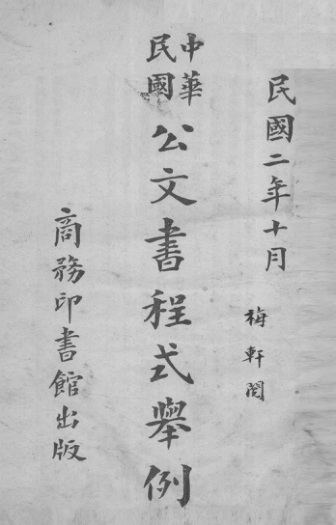 民國二年十月
梅軒閱
中華
民國
公文書程式舉例
商務印書館出版